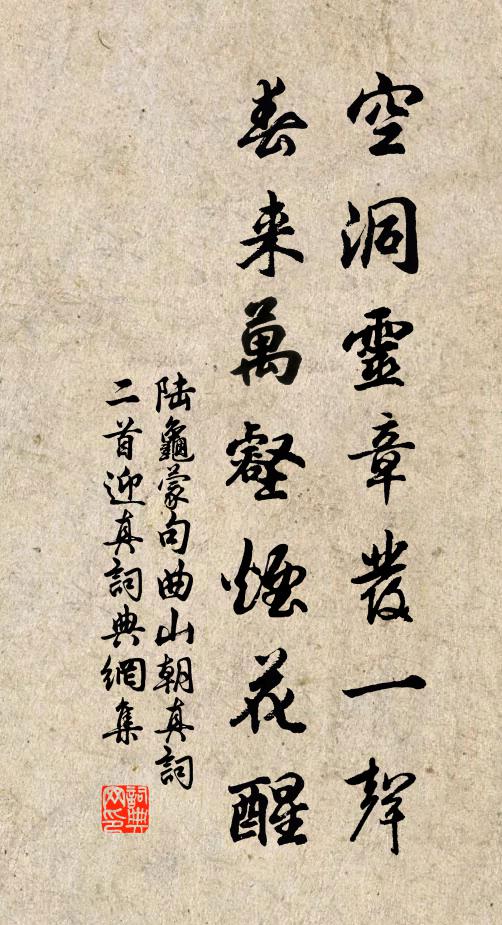 空洞靈章發一聲
春来萬壑煙花醒
陆龜蒙句曲山朝真詞
二首迎真詞典網集
詞典网印